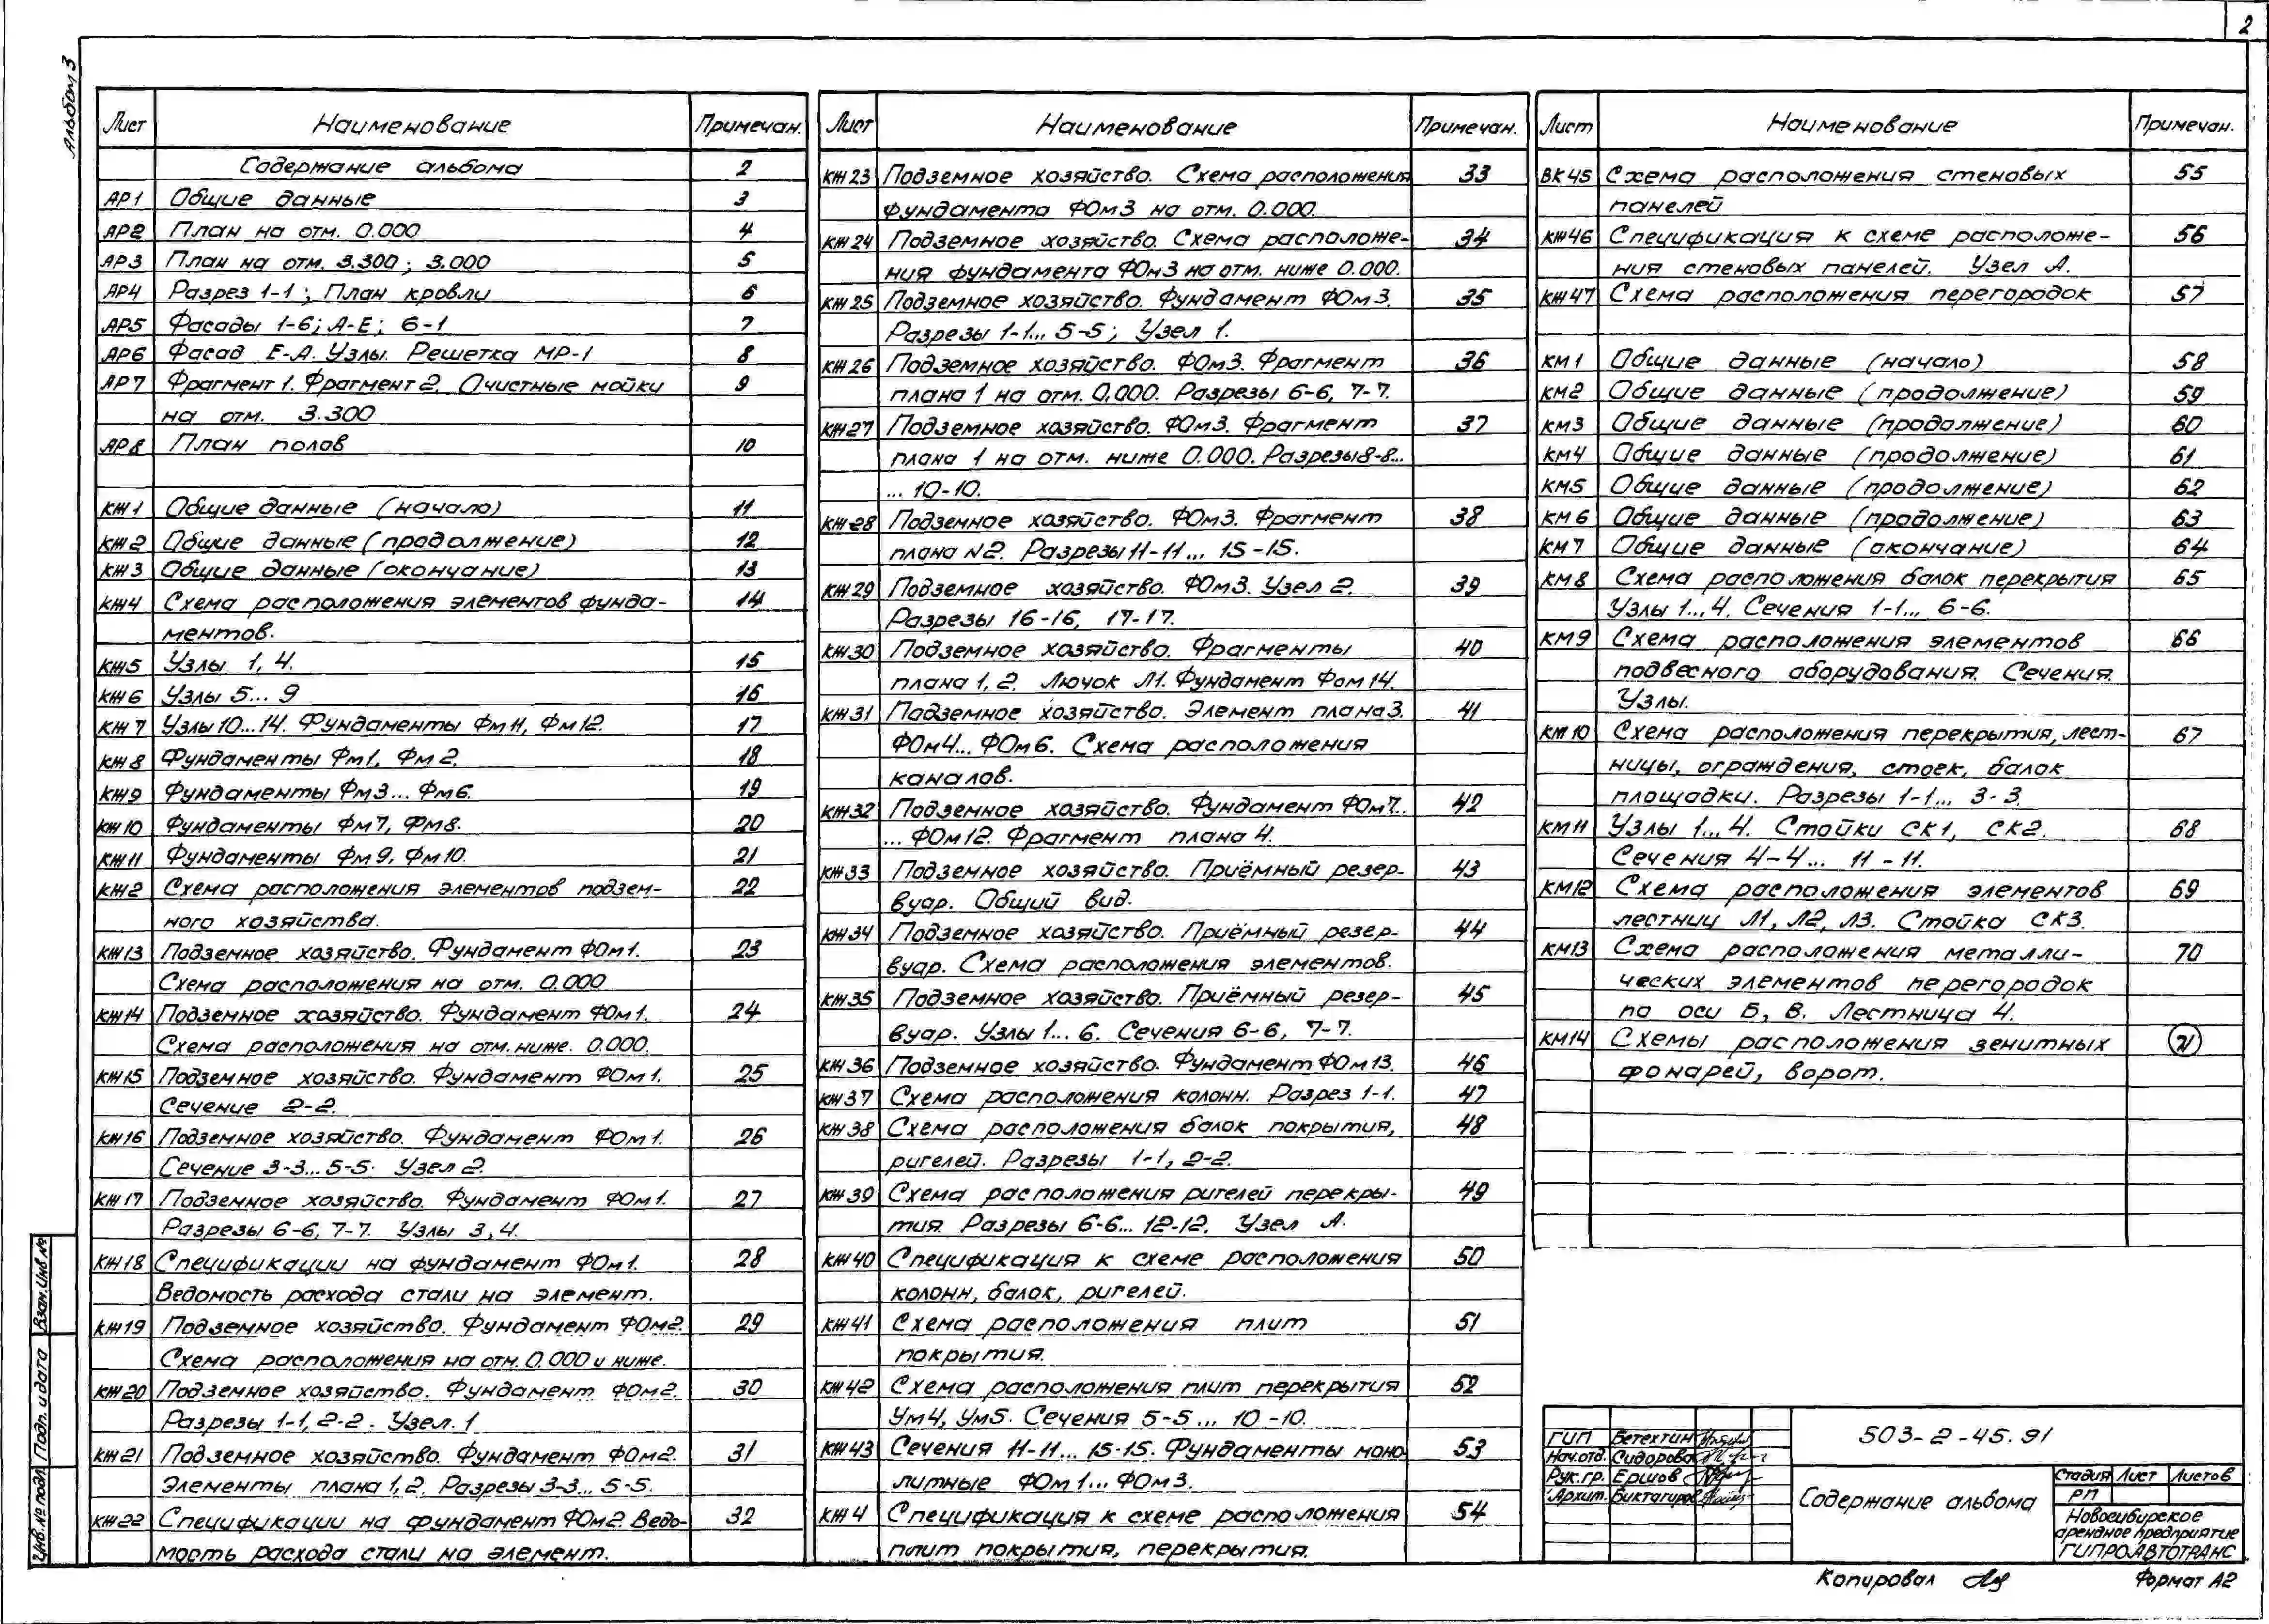 2
Альбом 3
Лист Наименование Примечан.
Содержание альбома 2
АР1 Общие данные 3
АР2 План на отм. 0.000 4
АР3 План на отм. 3.300; 3.000 5
АР4 Разрез 1-1; План кровли 6
АР5 Фасады 1-6; А-Е; 6-1 7
АР6 Фасад Е-А. Узлы. Решетка МР-1 8
АР7 Фрагмент 1. Фрагмент 2. Очистные мойки 9
на отм. 3.300
АР8 План полов 10
КЖ1 Общие данные (начало) 11
КЖ2 Общие данные (продолжение) 12
КЖ3 Общие данные (окончание) 13
КЖ4 Схема расположения элементов фунда- 14
ментов.
КЖ5 Узлы 1, 4. 15
КЖ6 Узлы 5... 9 16
КЖ7 Узлы 10...14. Фундаменты Фм11, Фм12. 17
КЖ8 Фундаменты Фм1, Фм2. 18
КЖ9 Фундаменты Фм3... Фм6. 19
КЖ10 Фундаменты Фм7, Фм8. 20
КЖ11 Фундаменты Фм9, Фм10. 21
КЖ2 Схема расположения элементов подзем- 22
ного хозяйства.
КЖ13 Подземное хозяйство. Фундамент ФОм1. 23
Схема расположения на отм. 0.000
КЖ14 Подземное хозяйство. Фундамент ФОм1. 24
Схема расположения на отм. ниже. 0.000.
КЖ15 Подземное хозяйство. Фундамент ФОм1. 25
Сечение 2-2.
КЖ16 Подземное хозяйство. Фундамент ФОм1. 26
Сечение 3-3... 5-5. Узел 2.
КЖ17 Подземное хозяйство. Фундамент ФОм1. 27
Разрезы 6-6, 7-7. Узлы 3, 4.
КЖ18 Спецификации на фундамент ФОм1. 28
Ведомость расхода стали на элемент.
КЖ19 Подземное хозяйство. Фундамент ФОм2. 29
Схема расположения на отм. 0.000 и ниже.
КЖ20 Подземное хозяйство. Фундамент ФОм2. 30
Разрезы 1-1, 2-2. Узел. 1
КЖ21 Подземное хозяйство. Фундамент ФОм2. 31
Элементы плана 1, 2. Разрезы 3-3... 5-5.
КЖ22 Спецификации на фундамент ФОм2. Ведо- 32
мость расхода стали на элемент.
Лист Наименование Примечан.
КЖ23 Подземное хозяйство. Схема расположения 33
фундамента ФОм3 на отм. 0.000.
КЖ24 Подземное хозяйство. Схема расположе- 34
ния фундамента ФОм3 на отм. ниже 0.000.
КЖ25 Подземное хозяйство. Фундамент ФОм3. 35
Разрезы 1-1... 5-5; Узел 1.
КЖ26 Подземное хозяйство. ФОм3. Фрагмент 36
плана 1 на отм. 0.000. Разрезы 6-6, 7-7.
КЖ27 Подземное хозяйство. ФОм3. Фрагмент 37
плана 1 на отм. ниже 0.000. Разрезы 8-8...
... 10-10.
КЖ28 Подземное хозяйство. ФОм3. Фрагмент 38
плана N2. Разрезы 11-11... 15-15.
КЖ29 Подземное хозяйство. ФОм3. Узел 2. 39
Разрезы 16-16, 17-17.
КЖ30 Подземное хозяйство. Фрагменты 40
плана 1, 2. Лючок Л1. Фундамент Фом14.
КЖ31 Подземное хозяйство. Элемент плана 3. 41
ФОм4... ФОм6. Схема расположения
каналов.
КЖ32 Подземное хозяйство. Фундамент ФОм7.. 42
... ФОм12. Фрагмент плана 4.
КЖ33 Подземное хозяйство. Приёмный резер- 43
вуар. Общий вид.
КЖ34 Подземное хозяйство. Приёмный резер- 44
вуар. Схема расположения элементов.
КЖ35 Подземное хозяйство. Приёмный резер- 45
вуар. Узлы 1... 6. Сечения 6-6, 7-7.
КЖ36 Подземное хозяйство. Фундамент ФОм13. 46
КЖ37 Схема расположения колонн. Разрез 1-1. 47
КЖ38 Схема расположения балок покрытия, 48
ригелей. Разрезы 1-1, 2-2.
КЖ39 Схема расположения ригелей перекры- 49
тия. Разрезы 6-6... 12-12. Узел А.
КЖ40 Спецификация к схеме расположения 50
колонн, балок, ригелей.
КЖ41 Схема расположения плит 51
покрытия.
КЖ42 Схема расположения плит перекрытия 52
Ум4, Ум5. Сечения 5-5... 10-10.
КЖ43 Сечения 11-11... 15-15. Фундаменты моно- 53
литные ФОм1... ФОм3.
КЖ4 Спецификация к схеме расположения 54
плит покрытия, перекрытия.
Лист Наименование Примечан.
ВК45 Схема расположения стеновых 55
панелей
КЖ46 Спецификация к схеме расположе- 56
ния стеновых панелей. Узел А.
КЖ47 Схема расположения перегородок 57
КМ1 Общие данные (начало) 58
КМ2 Общие данные (продолжение) 59
КМ3 Общие данные (продолжение) 60
КМ4 Общие данные (продолжение) 61
КМ5 Общие данные (продолжение) 62
КМ6 Общие данные (продолжение) 63
КМ7 Общие данные (окончание) 64
КМ8 Схема расположения балок перекрытия 65
Узлы 1...4. Сечения 1-1... 6-6.
КМ9 Схема расположения элементов 66
подвесного оборудования. Сечения.
Узлы.
КМ10 Схема расположения перекрытия, лест- 67
ницы, ограждения, стоек, балок
площадки. Разрезы 1-1... 3-3.
КМ11 Узлы 1...4. Стойки СК1, СК2. 68
Сечения 4-4... 11-11.
КМ12 Схема расположения элементов 69
лестниц Л1, Л2, Л3. Стойка СК3.
КМ13 Схема расположения металли- 70
ческих элементов перегородок
по оси Б, В. Лестница 4.
КМ14 Схемы расположения зенитных 71
фонарей, ворот.
Взам. инв №
Подп. и дата
Инв. № подл.
ГИП Бетехтин
Нач.отд. Сидорова
Рук.гр. Ершов
Архит. Биктагиров
503-2-45.91
Содержание альбома
Стадия Лист Листов
РП
Новосибирское
арендное предприятие
ГИПРОАВТОТРАНС
Копировал
Формат А2